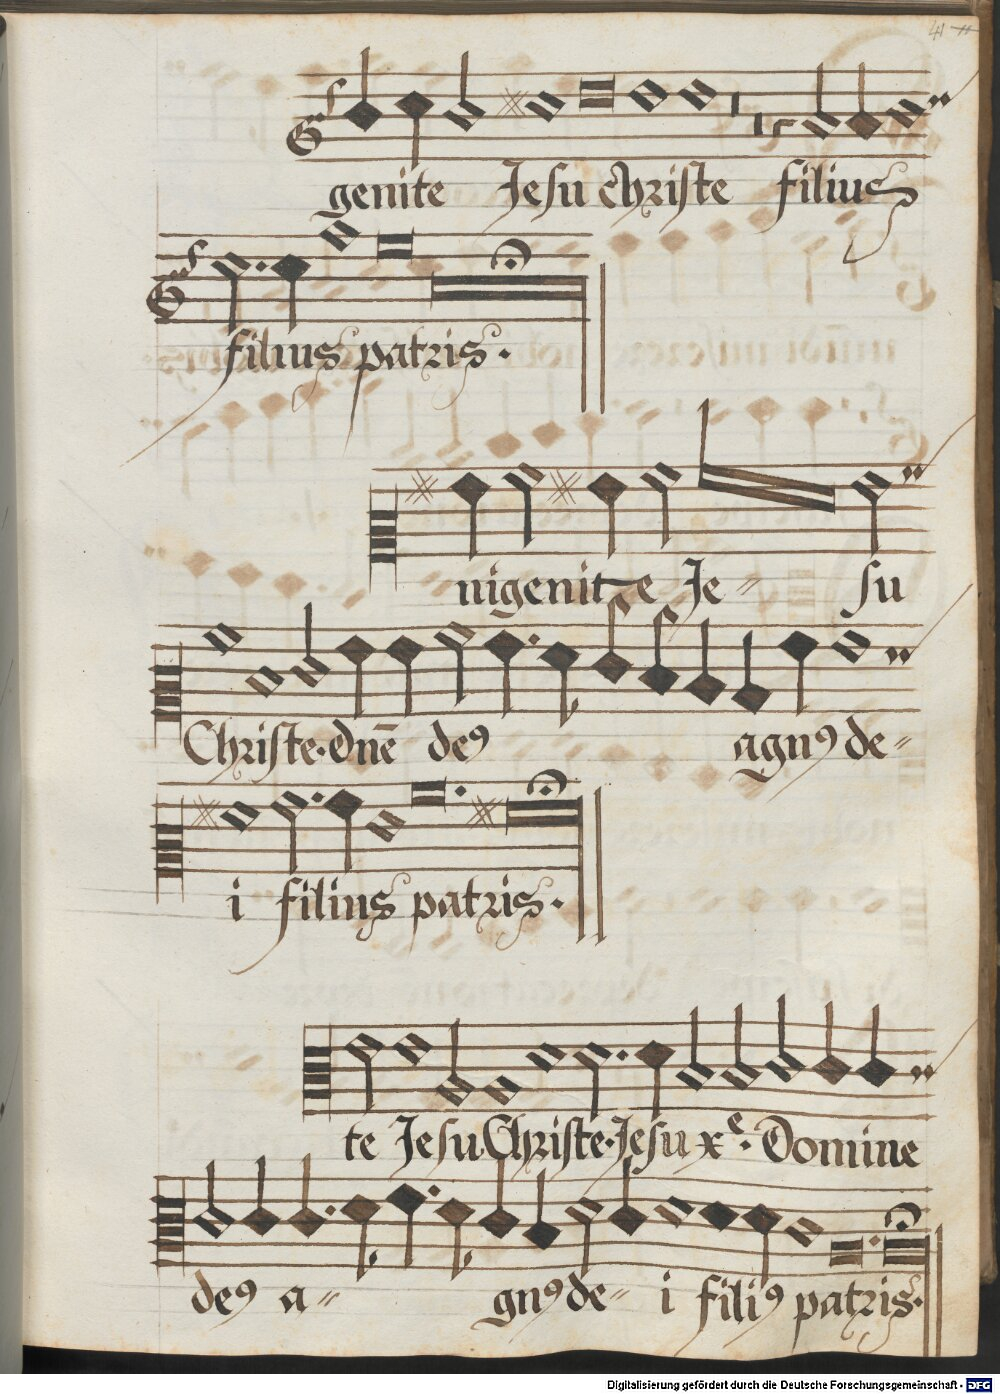 41
genite Jesu Christe filius
filius patris.
nigenite Je- su
Christe. dnē deꝰ agnꝰ de-
i filius patris.
te Jesu Christe. Jesu xe. Domine
deꝰ a- gnꝰ de- i filiꝰ patris.
Digitalisierung gefördert durch die Deutsche Forschungsgemeinschaft - DFG